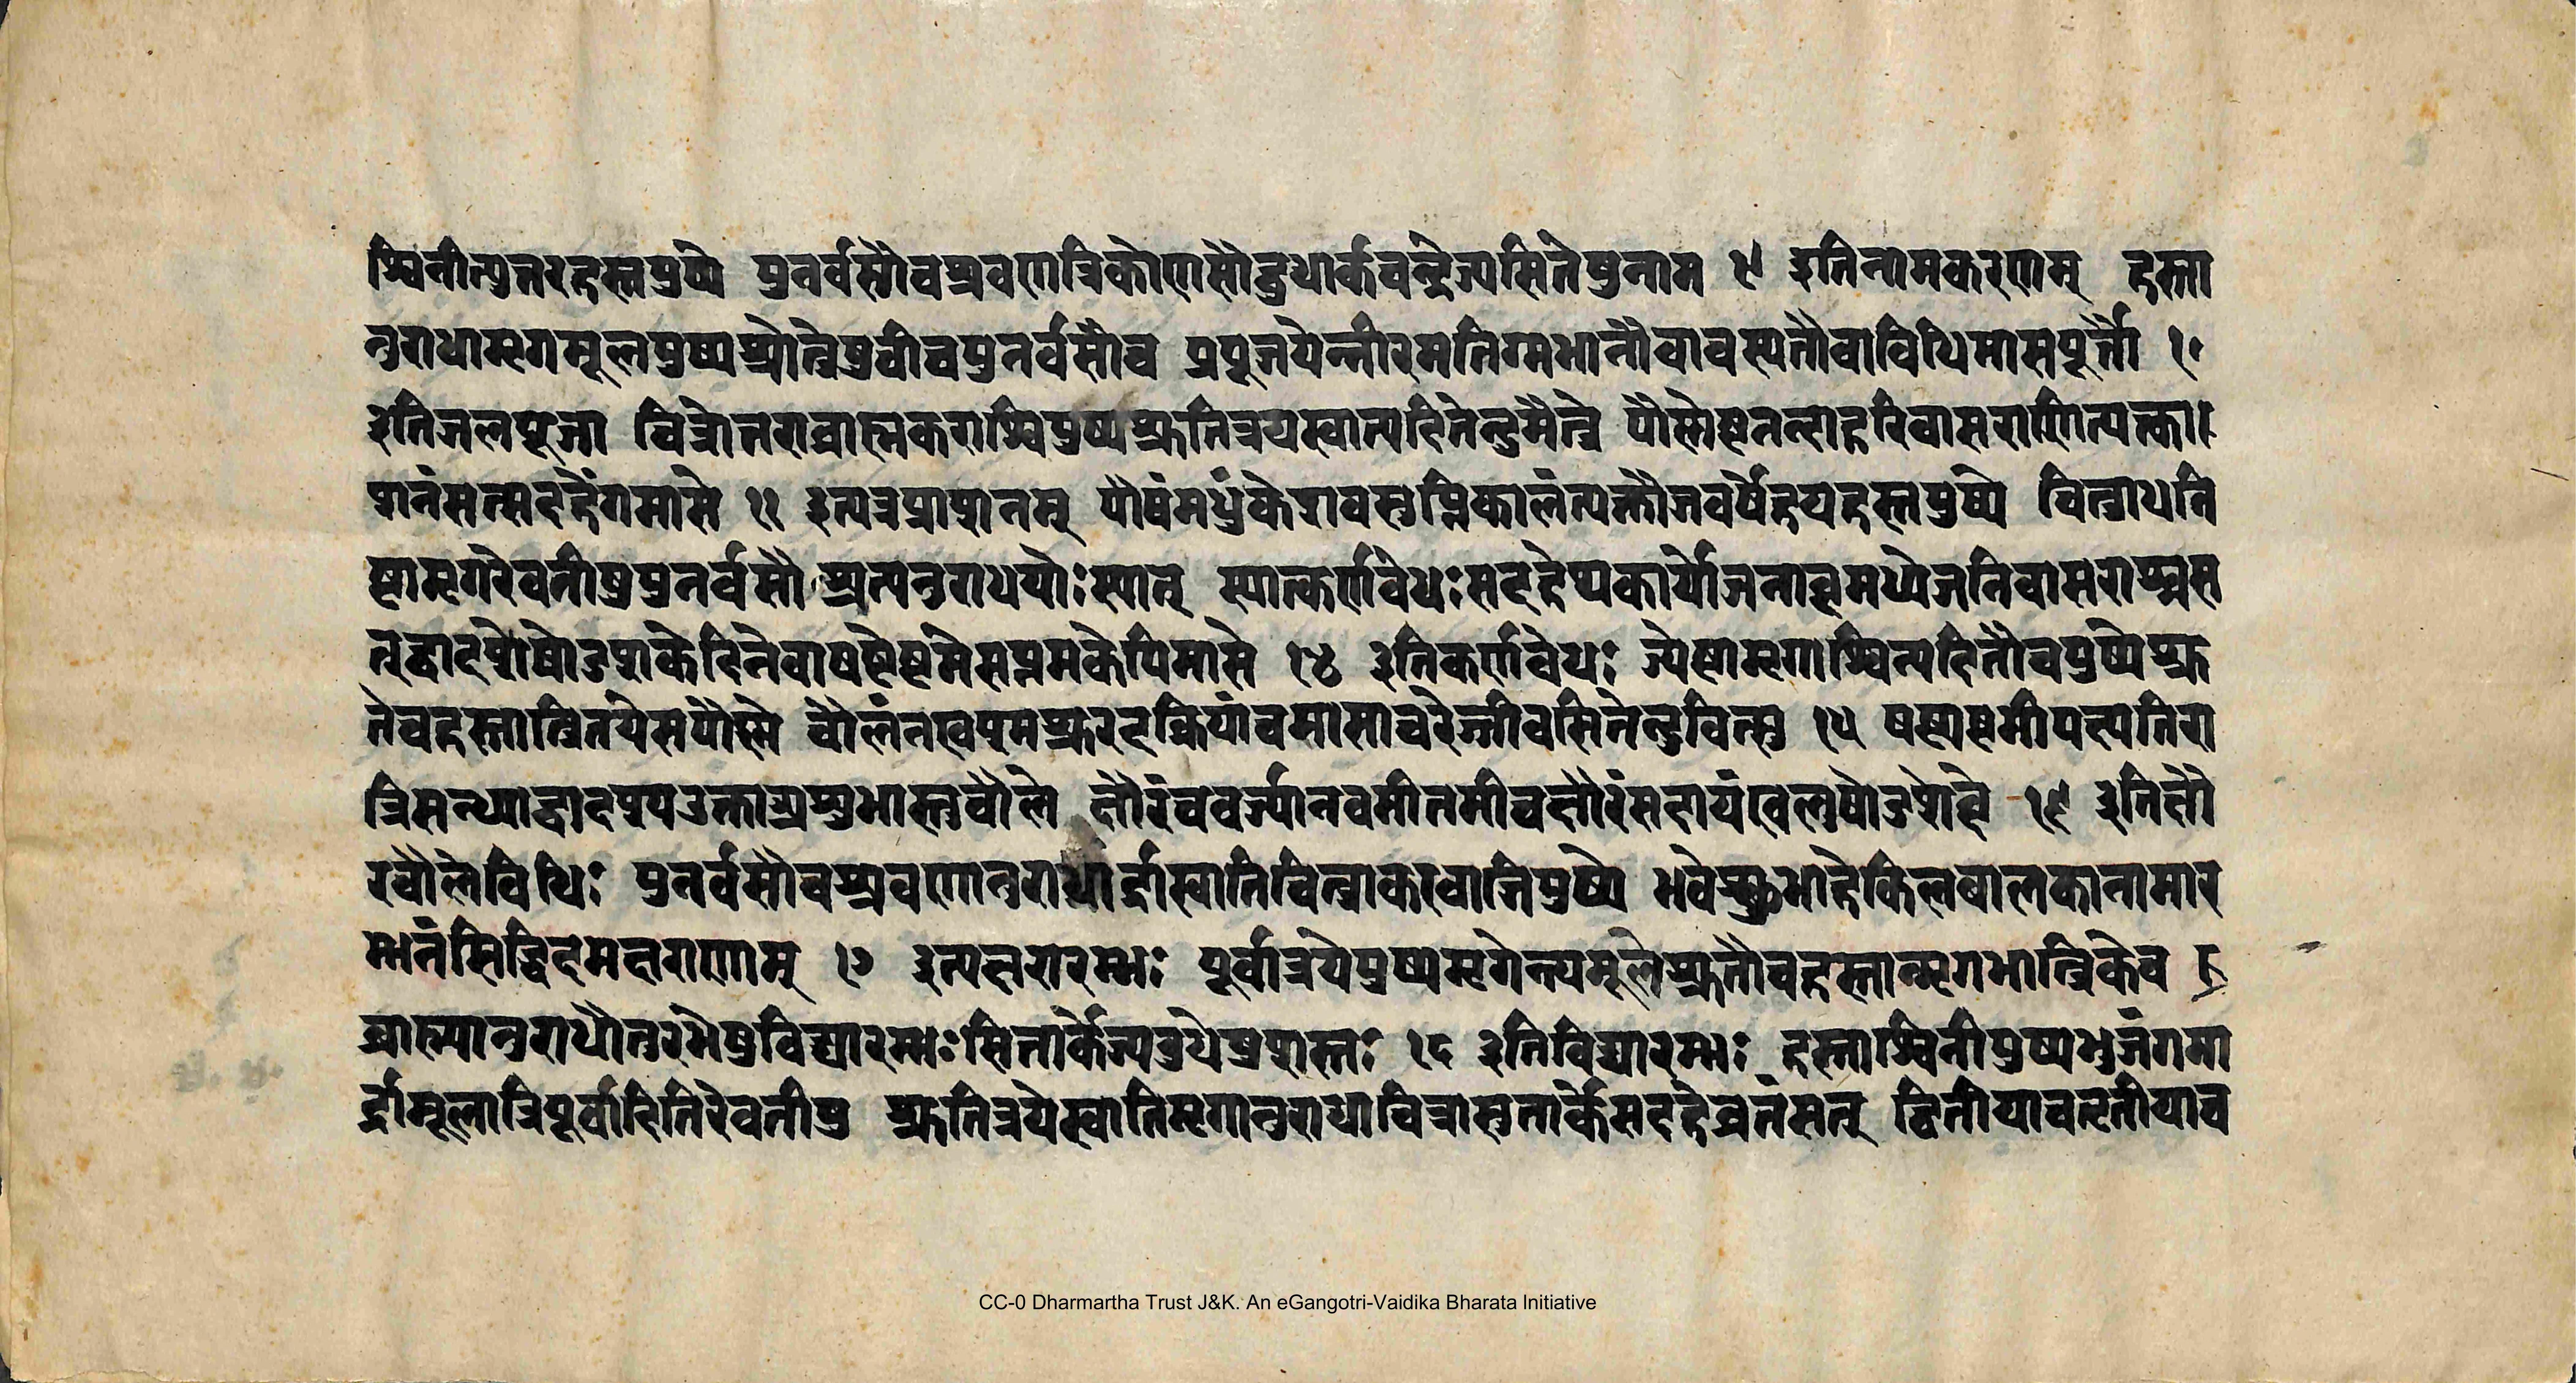 श्विनीत्युत्तरहस्तपुष्ये पुनर्वसौचश्रवणात्रिकोणसौबुधार्कचन्द्रेज्यसितेषुनाम ९ इतिनामकरणम् हस्ता
नुराधामृगमूलपुष्यश्रोत्रेषुचीचपुनर्वसौच प्रपूजयेन्नीरमतिग्मभानौचावस्यतौवाविधिमासपूर्त्तौ १॰
इतिजलपूजा चित्रोत्तराब्राह्मकराश्विपुष्यश्रुतित्रयस्वात्यदितीन्दुमैत्रे पौष्णेष्टनन्दाहरिवासराणित्यक्त्वा
शनंसत्सदहेंगमासे ११ इत्यन्नप्राशनम् पौषंमधुंकेशवसुप्तिकालंत्यक्तौजवर्षेहयहस्तपुष्ये चित्राधनि
ष्ठामृगरेवतीषुपुनर्वसौश्रत्यनुराधयोःस्यात् स्यात्कर्णवेधःसदहेप्यकार्योजनाह्वमध्येजनिवासराच्चस
त्द्वादशेषोडशकेदिनेवाषष्ठेष्टमेसप्तमकेपिमासे १४ इतिकर्णवेधः ज्येष्ठामृगाश्विन्यदितौचपुष्येश्रु
तेचहस्तात्रितयेसपौष्णे चौलंनखश्मश्रुरदक्रियांचमासाचरेज्जीवसितेन्दुवित्सु १५ षष्ठ्यष्टमीपत्यतिरा
त्रिसन्ध्याद्वादश्युपउक्ताअशुभास्तुचौले क्षौरंचवर्ज्यानवमीतमीचक्षौरंसदायंखलुषोडशेह्ने १६ इतिक्षौ
रचौलेविधिः पुनर्वसौचश्रवणानुराधार्द्रास्वातिचित्राकरवाजिपुष्ये भवेच्छुभाहेकिलबालकानामार
म्भनंसिद्धिदमक्षराणाम् १७ इत्यक्षरारम्भः पूर्वात्रयेपुष्यमृगेन्त्यमूलेश्रुतौचहस्तान्मृगभात्त्रिकेच
ब्राह्म्यानुराधोत्तरभेषुविद्यारम्भःसितार्केज्यबुधेप्रशस्तः १८ इतिविद्यारम्भः हस्ताश्विनीपुष्यभुजंगमा
र्द्रामूलात्रिपूर्वादितिरेवतीषु श्रुतित्रयेस्वातिमृगानुराधाचित्रासुतार्केसदहेव्रतंसत् द्वितीयाचतृतीयाच
CC-0 Dharmartha Trust J&K. An eGangotri-Vaidika Bharata Initiative